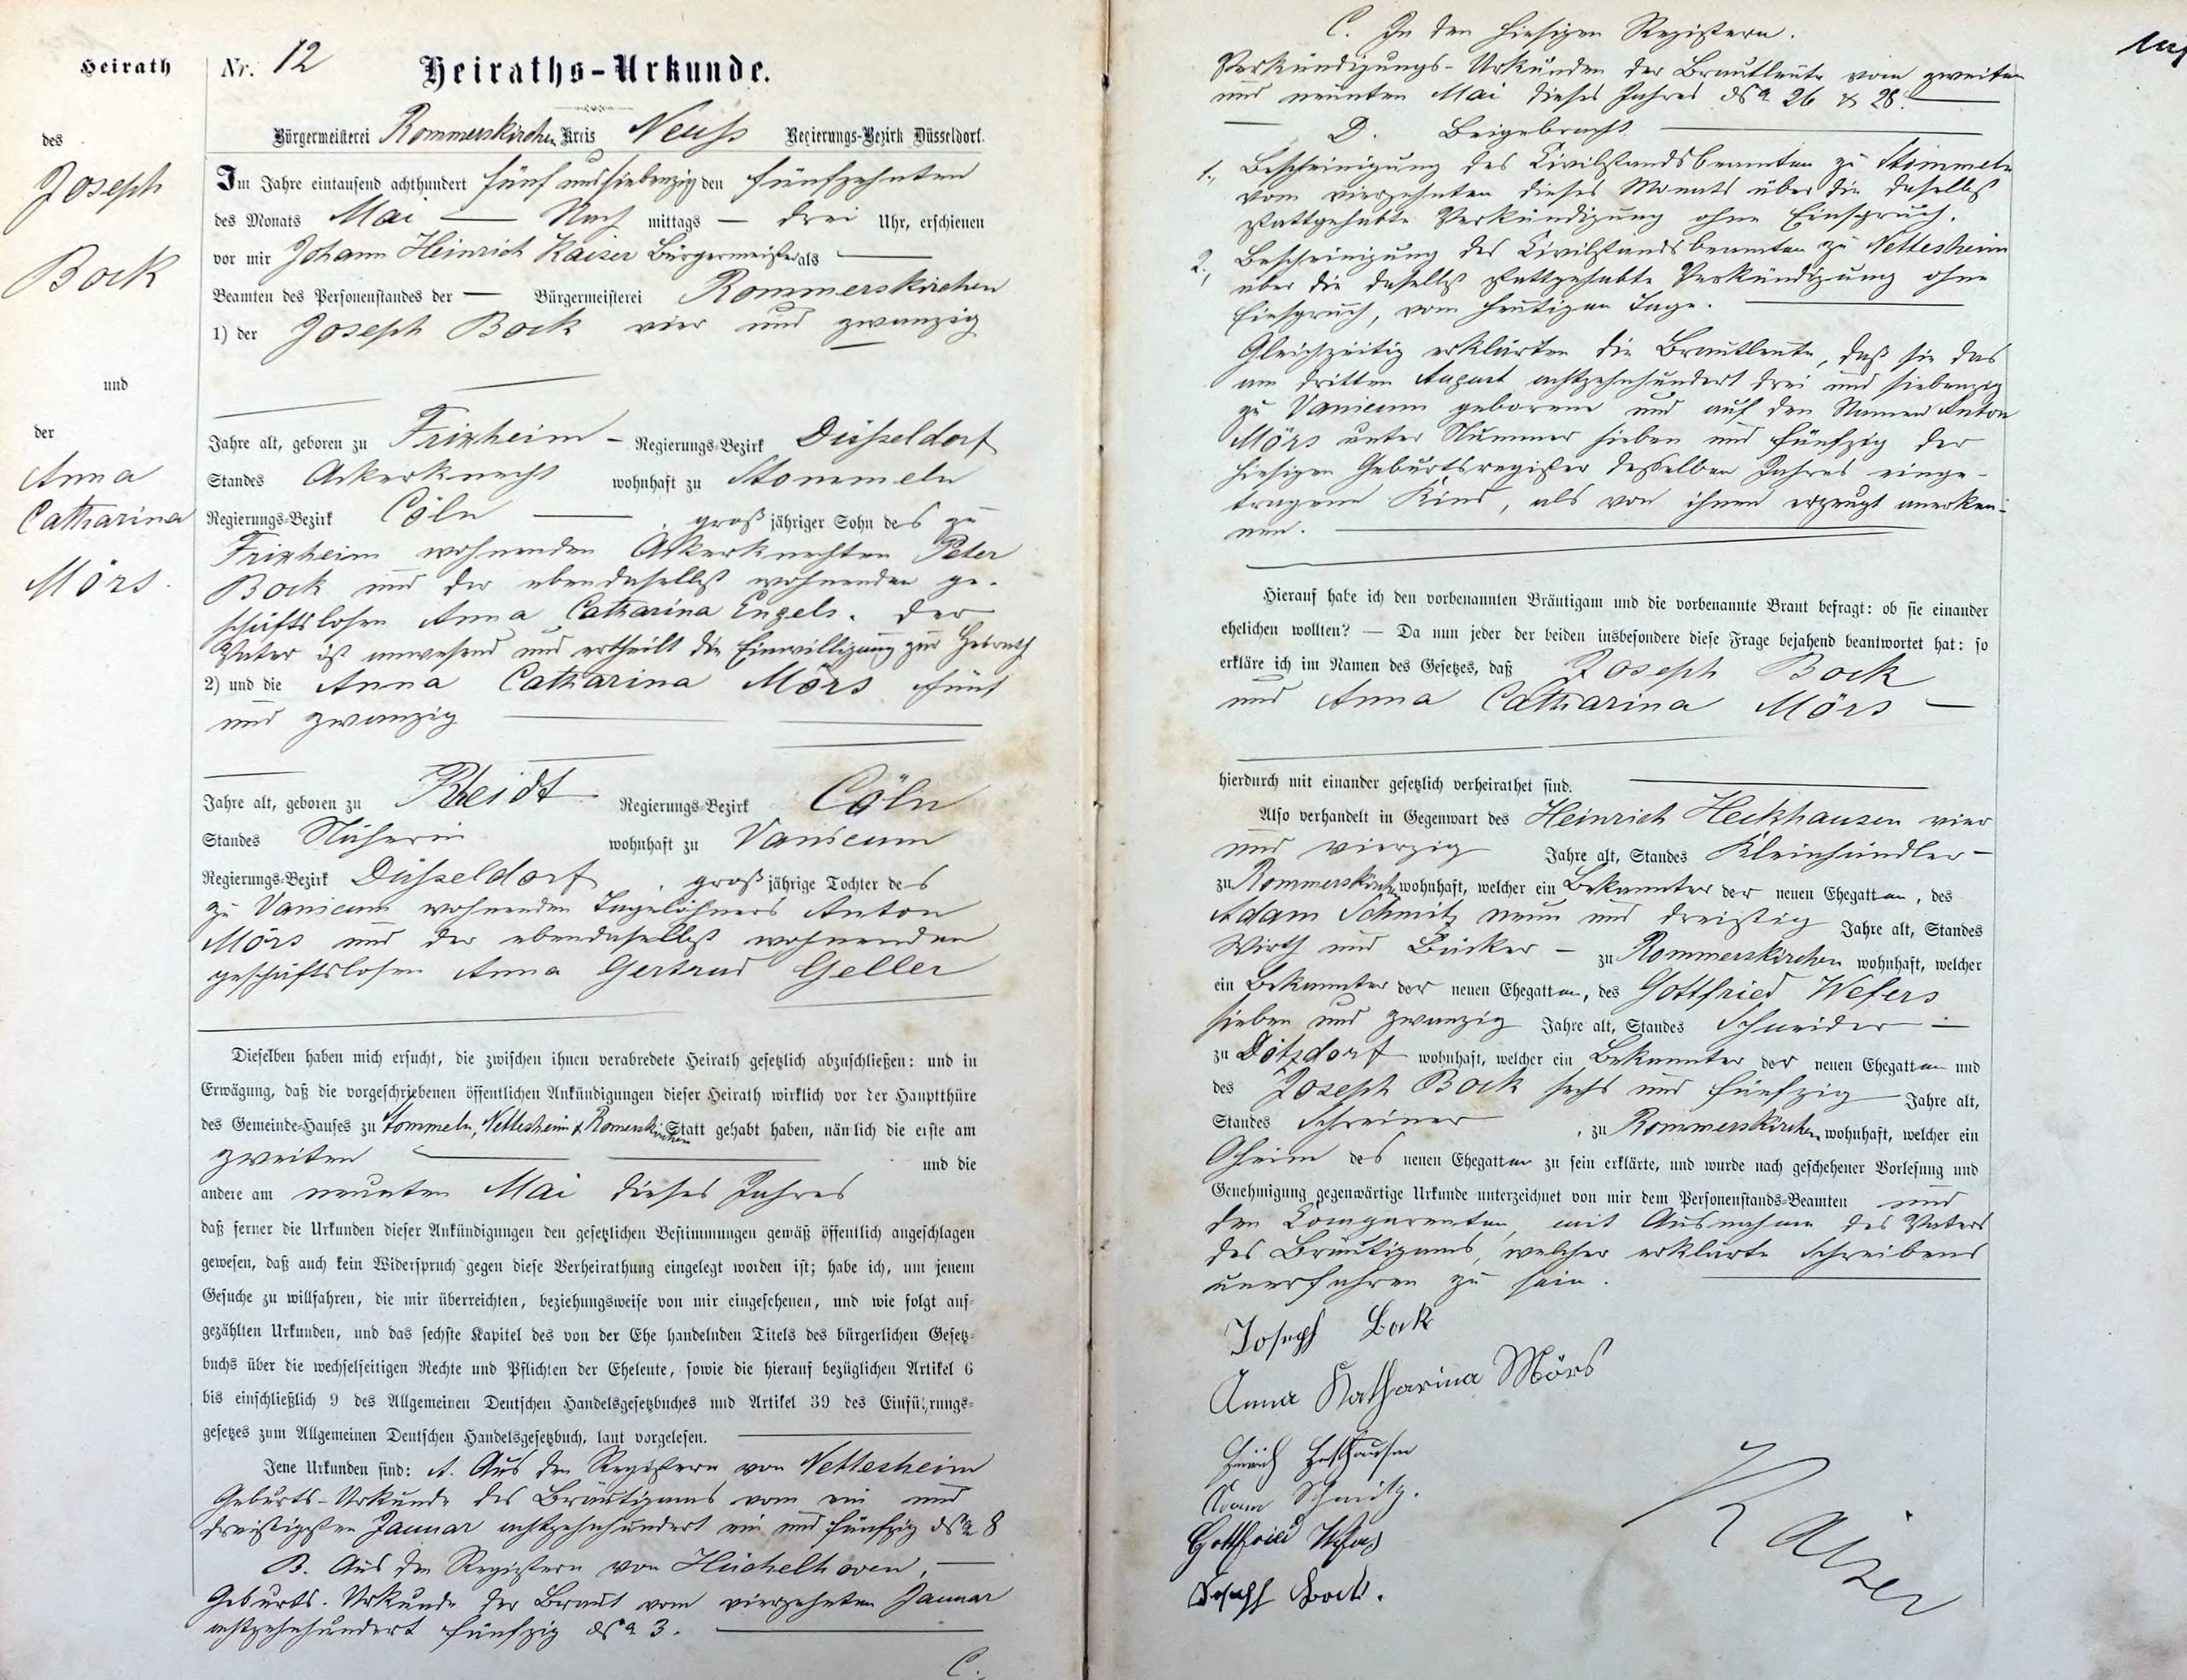 Heirath
des
Joseph
Bock
und
der
Anna
Catharina
Mörs.
Nr. 12 Heiraths-Urkunde.
Bürgermeisterei Rommerskirchen Kreis Neuss Regierungs-Bezirk Düsseldorf.
Im Jahre eintausend achthundert fünf und siebenzig den fünfzehnten
des Monats Mai — Nach mittags — drei Uhr, erschienen
vor mir Johann Heinrich Kaiser Bürgermeister als —
Beamten des Personenstandes der — Bürgermeisterei Rommerskirchen
1) der Joseph Bock vier und zwanzig
Jahre alt, geboren zu Frixheim — Regierungs-Bezirk Düsseldorf
Standes Ackerknecht wohnhaft zu Stommeln
Regierungs-Bezirk Cöln —, großjähriger Sohn des zu
Frixheim wohnenden Ackerknechten Peter
Bock und der ebendaselbst wohnenden ge-
schäftslosen Anna Catharina Engels. Der
Vater ist anwesend und ertheilt die Einwilligung zur Heirath
2) und die Anna Catharina Mörs fünf
und zwanzig
Jahre alt, geboren zu Rheidt Regierungs-Bezirk Cöln
Standes Näherin wohnhaft zu Vanicum
Regierungs-Bezirk Düsseldorf, großjährige Tochter des
zu Vanicum wohnenden Tagelöhners Anton
Mörs und der ebendaselbst wohnenden
geschäftslosen Anna Gertrud Geller
Dieselben haben mich ersucht, die zwischen ihnen verabredete Heirath gesetzlich abzuschließen: und in
Erwägung, daß die vorgeschriebenen öffentlichen Ankündigungen dieser Heirath wirklich vor der Hauptthüre
des Gemeinde-Hauses zu Stommeln, Nettesheim & Romerskirchen Statt gehabt haben, nämlich die erste am
zweiten — und die
andere am neunten Mai dieses Jahres
daß ferner die Urkunden dieser Ankündigungen den gesetzlichen Bestimmungen gemäß öffentlich angeschlagen
gewesen, daß auch kein Widerspruch gegen diese Verheirathung eingelegt worden ist; habe ich, um jenem
Gesuche zu willfahren, die mir überreichten, beziehungsweise von mir eingesehenen, und wie folgt auf-
gezählten Urkunden, und das sechste Kapitel des von der Ehe handelnden Titels des bürgerlichen Gesetz-
buchs über die wechselseitigen Rechte und Pflichten der Eheleute, sowie die hierauf bezüglichen Artikel 6
bis einschließlich 9 des Allgemeinen Deutschen Handelsgesetzbuches und Artikel 39 des Einführungs-
gesetzes zum Allgemeinen Deutschen Handelsgesetzbuch, laut vorgelesen.
Jene Urkunden sind: A. Aus den Registern von Nettesheim
Geburts-Urkunde des Bräutigams vom ein und
dreißigsten Januar achtzehnhundert ein und fünfzig No 8
B. Aus den Registern von Hüchelhoven,
Geburts-Urkunde der Braut vom vierzehnten Januar
achtzehnhundert fünfzig No 3.
C.
C. In den hiesigen Registern.
Verkündigungs-Urkunden der Brautleute vom zweiten
und neunten Mai dieses Jahres No 26 & 28.
D. Beigebracht
1., Bescheinigung des Civilstandsbeamten zu Stommeln
vom vierzehnten dieses Monats über die daselbst
stattgehabte Verkündigung ohne Einspruch.
2., Bescheinigung des Civilstandsbeamten zu Nettesheim
über die daselbst stattgehabte Verkündigung ohne
Einspruch, vom heutigen Tage.
Gleichzeitig erklärten die Brautleute, daß sie das
am dritten August achtzehnhundert drei und siebenzig
zu Vanicum geborene und auf den Namen Anton
Mörs unter Nummer sieben und fünfzig der
hiesigen Geburtsregister desselben Jahres einge-
tragene Kind, als von ihnen erzeugt anerken-
nen.
Hierauf habe ich den vorbenannten Bräutigam und die vorbenannte Braut befragt: ob sie einander
ehelichen wollten? — Da nun jeder der beiden insbesondere diese Frage bejahend beantwortet hat: so
erkläre ich im Namen des Gesetzes, daß Joseph Bock
und Anna Catharina Mörs —
hierdurch mit einander gesetzlich verheirathet sind.
Also verhandelt in Gegenwart des Heinrich Heckhausen vier
und vierzig Jahre alt, Standes Kleinhändler —
zu Rommerskirchen wohnhaft, welcher ein Bekannter der neuen Ehegatten, des
Adam Schmitz neun und dreißig Jahre alt, Standes
Wirth und Bäcker — zu Rommerskirchen wohnhaft, welcher
ein Bekannter der neuen Ehegatten, des Gottfried Wefers
sieben und zwanzig Jahre alt, Standes Schneider —
zu Dötzdorf wohnhaft, welcher ein Bekannter der neuen Ehegatten und
des Joseph Bock sechs und fünfzig Jahre alt,
Standes Schreiner, zu Rommerskirchen wohnhaft, welcher ein
Oheim des neuen Ehegatten zu sein erklärte, und wurde nach geschehener Vorlesung und
Genehmigung gegenwärtige Urkunde unterzeichnet von mir dem Personenstands-Beamten und
den Comparenten, mit Ausnahme des Vaters
des Bräutigams, welcher erklärte Schreibens
unerfahren zu sein.
Joseph Bock
Anna Katharina Mörs
Heinrich Heckhausen
Adam Schmitz.
Gottfried Wefers
Joseph Bock.
Kaiser